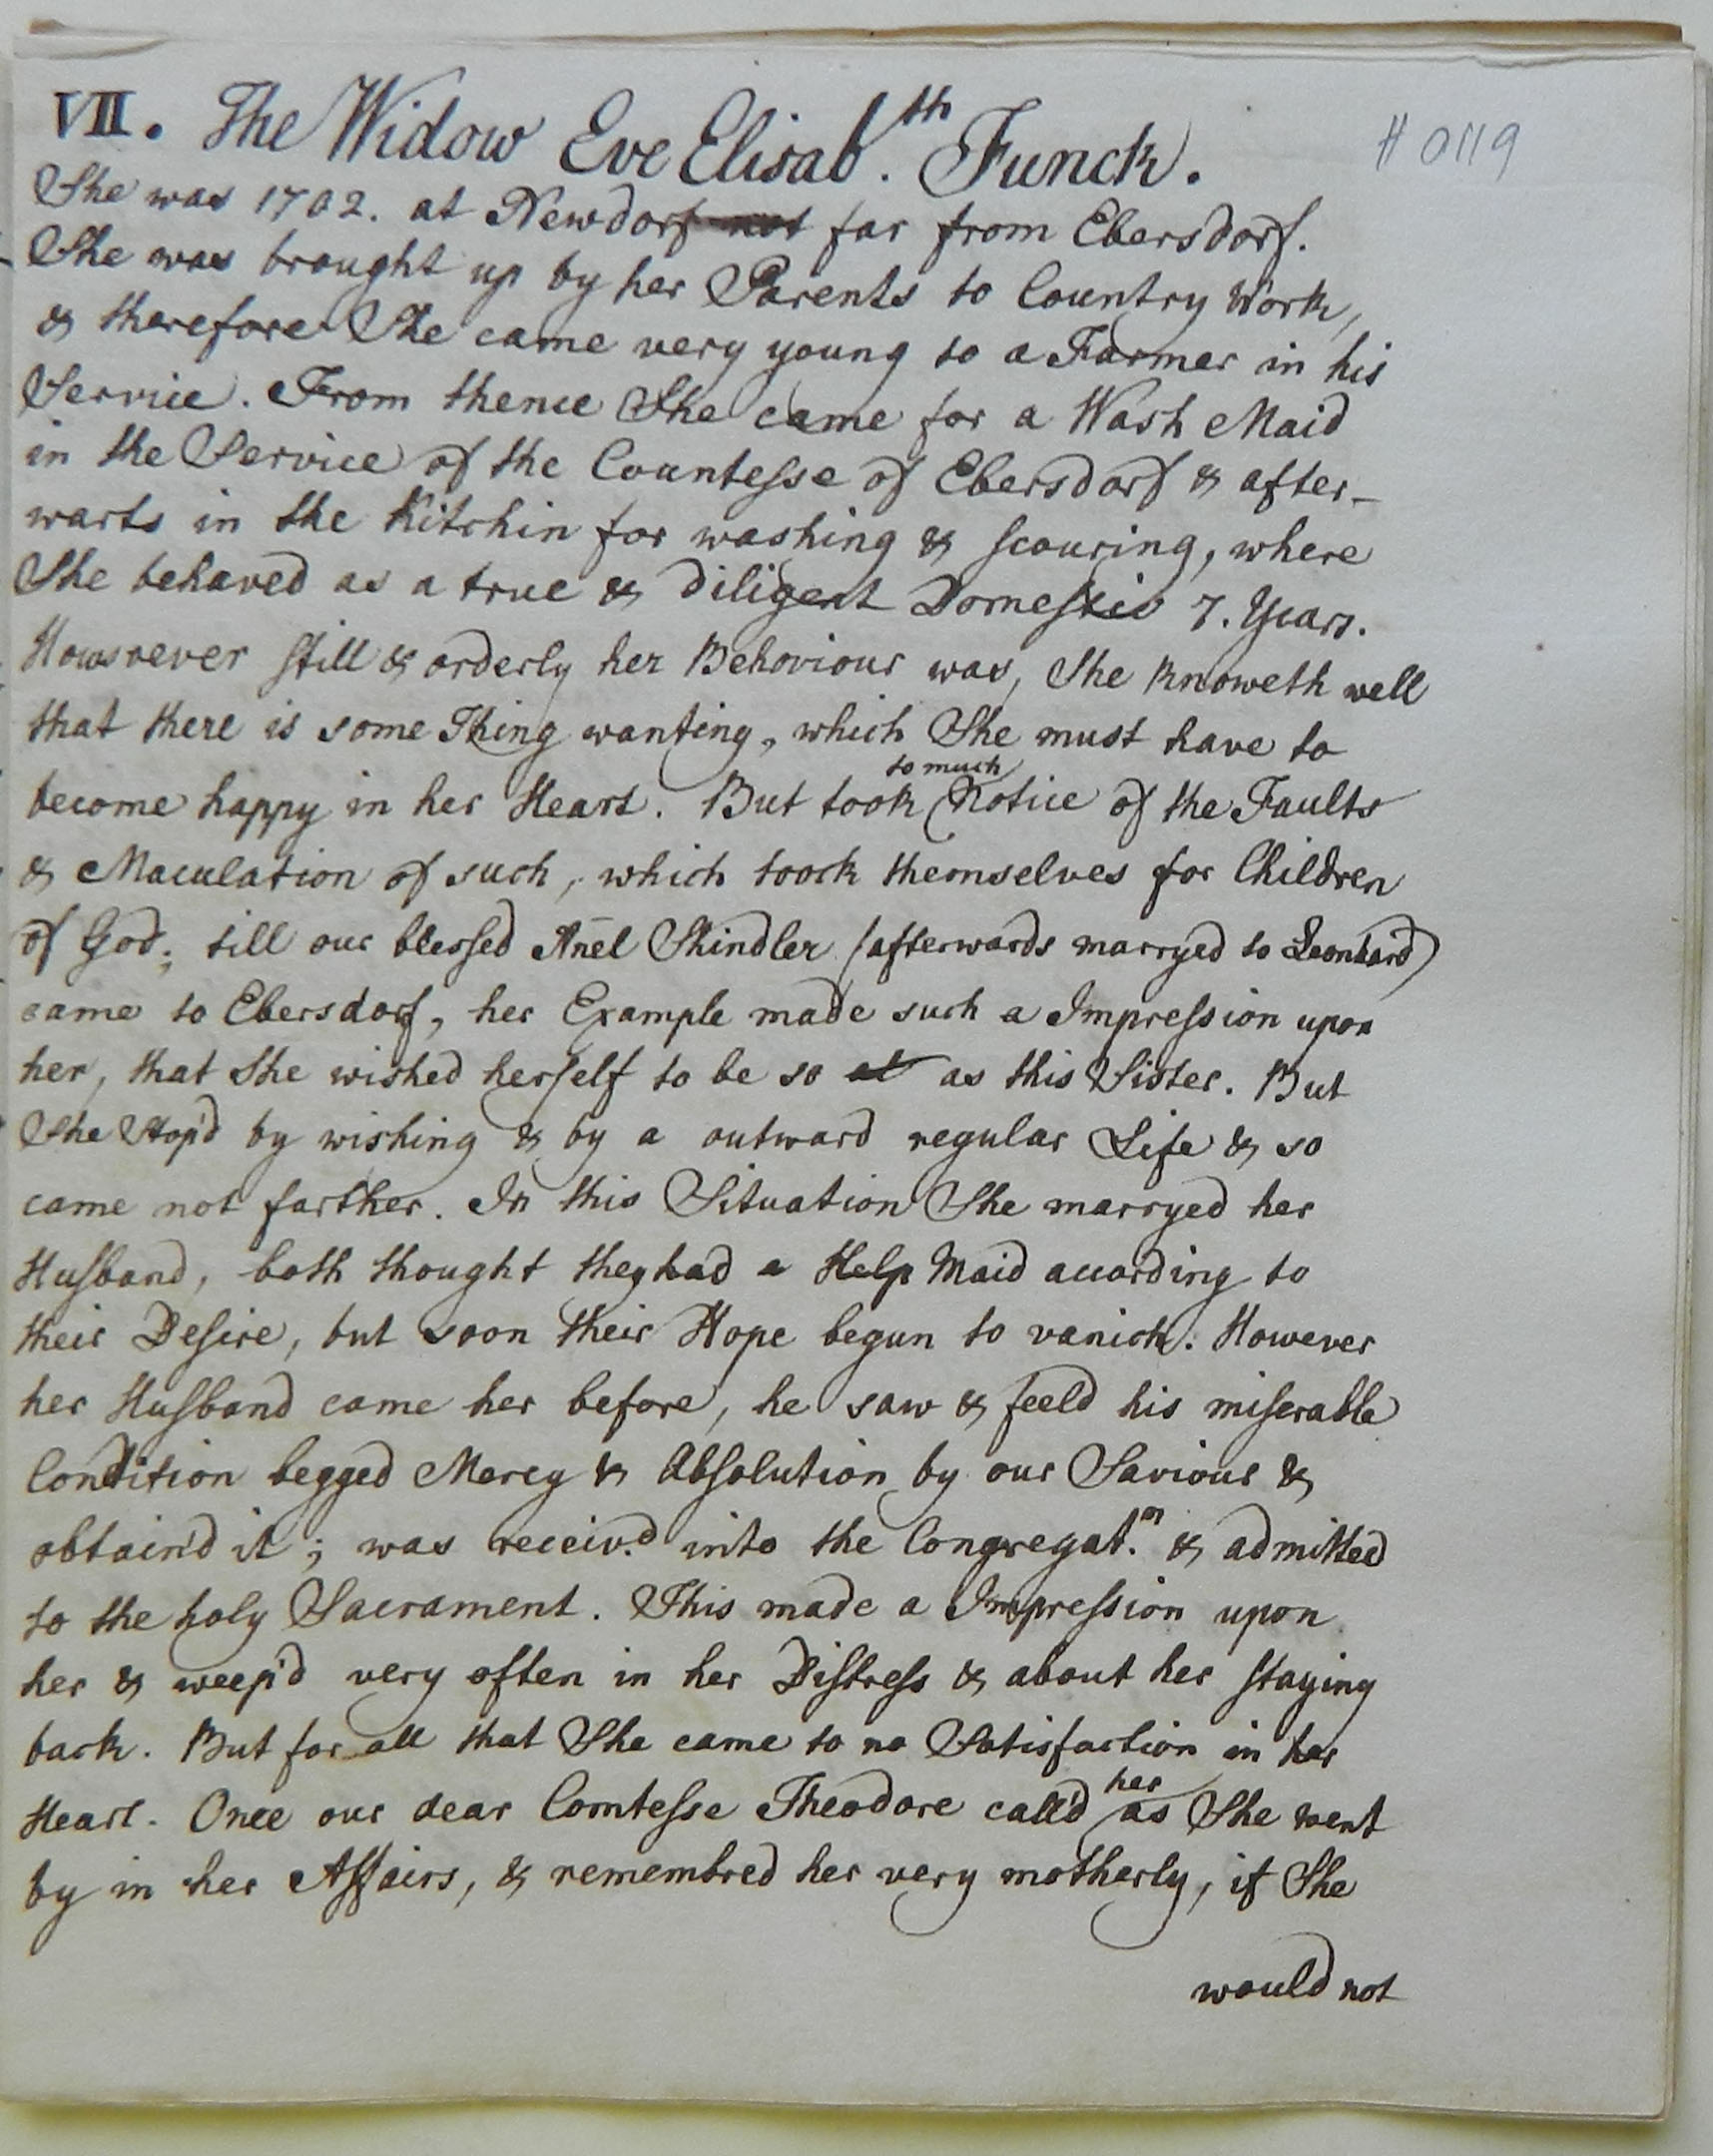 VII. The Widow Eve Elisab.th Funck.
# 0119
She was 1702. at Newdorf not far from Ebersdorf.
She was brought up by her Parents to Country Work,
& therefore She came very young to a Farmer in his
Service. From thence She came for a Wash Maid
in the Service of the Countesse of Ebersdorf & after-
warts in the Kitchin for washing & scouring, where
She behaved as a true & diligent Domestic 7. Years.
Howsrever still & orderly her Behoviour was, She knoweth well
that there is some Thing wanting, which She must have to
become happy in her Heart. But took so much Notice of the Faults
& Maculation of such, which toock themselves for Children
of God; till our blessed Añel Shindler (afterwards marryed to Leonhard)
came to Ebersdorf, her Example made such a Impression upon
her, that She wished herself to be so at as this Sister. But
She Stop'd by wishing & by a outward regular Life & so
came not farther. In this Situation She marryed her
Husband, both thought they had a Help Maid according to
their Desire, but soon their Hope begun to vanich. However
her Husband came her before, he saw & feeld his miserable
Condition begged Mercy & Absolution by our Saviour &
obtain'd it; was receiv.d into the Congregat.n & admitted
to the holy Sacrament. This made a Impression upon
her & weep'd very often in her Distress & about her staying
back. But for all that She came to no Satisfaction in her
Heart. Once our dear Comtesse Theodore call'd her as She went
by in her Affairs, & remembred her very motherly, if She
would not